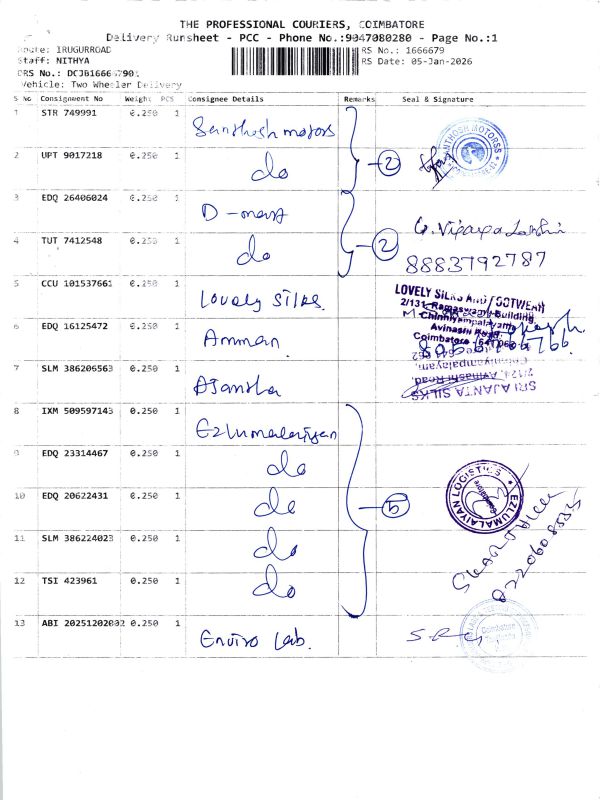 THE PROFESSIONAL COURIERS, COIMBATORE
Delivery Runsheet - PCC - Phone No.:9047080280 - Page No.:1
Route: IRUGURROAD
RS No.: 1666679
Staff: NITHYA
RS Date: 05-Jan-2026
DRS No.: DCJB166667901
Vehicle: Two Wheeler Delivery
S No Consignment No Weight PCS Consignee Details Remarks Seal & Signature
1 STR 749991 0.250 1 Santhosh motors
2 UPT 9017218 0.250 1 do 2
3 EDQ 26406024 0.250 1 D-mart
4 TUT 7412548 0.250 1 do 2
8883792787
5 CCU 101537661 0.250 1 Lovely Silks
LOVELY SILKS AND FOOTWEAR
2/131, Ramaswamy Building,
Chinniyampalayam,
Avinashi Road,
Coimbatore - 641 062
6 EDQ 16125472 0.250 1 Amman
7 SLM 386206563 0.250 1 Ajantha
SRI AJANTA SILKS
2/124, Avinashi Road,
Chinniyampalayam,
8 IXM 509597143 0.250 1 Ezlumalaiyan
9 EDQ 23314467 0.250 1 do
10 EDQ 20622431 0.250 1 do 5
EZLUMALAIYAN LOGISTICS
Coimbatore
11 SLM 386224023 0.250 1 do
12 TSI 423961 0.250 1 do
13 ABI 20251202002 0.250 1 Enviro Lab.
Coimbatore